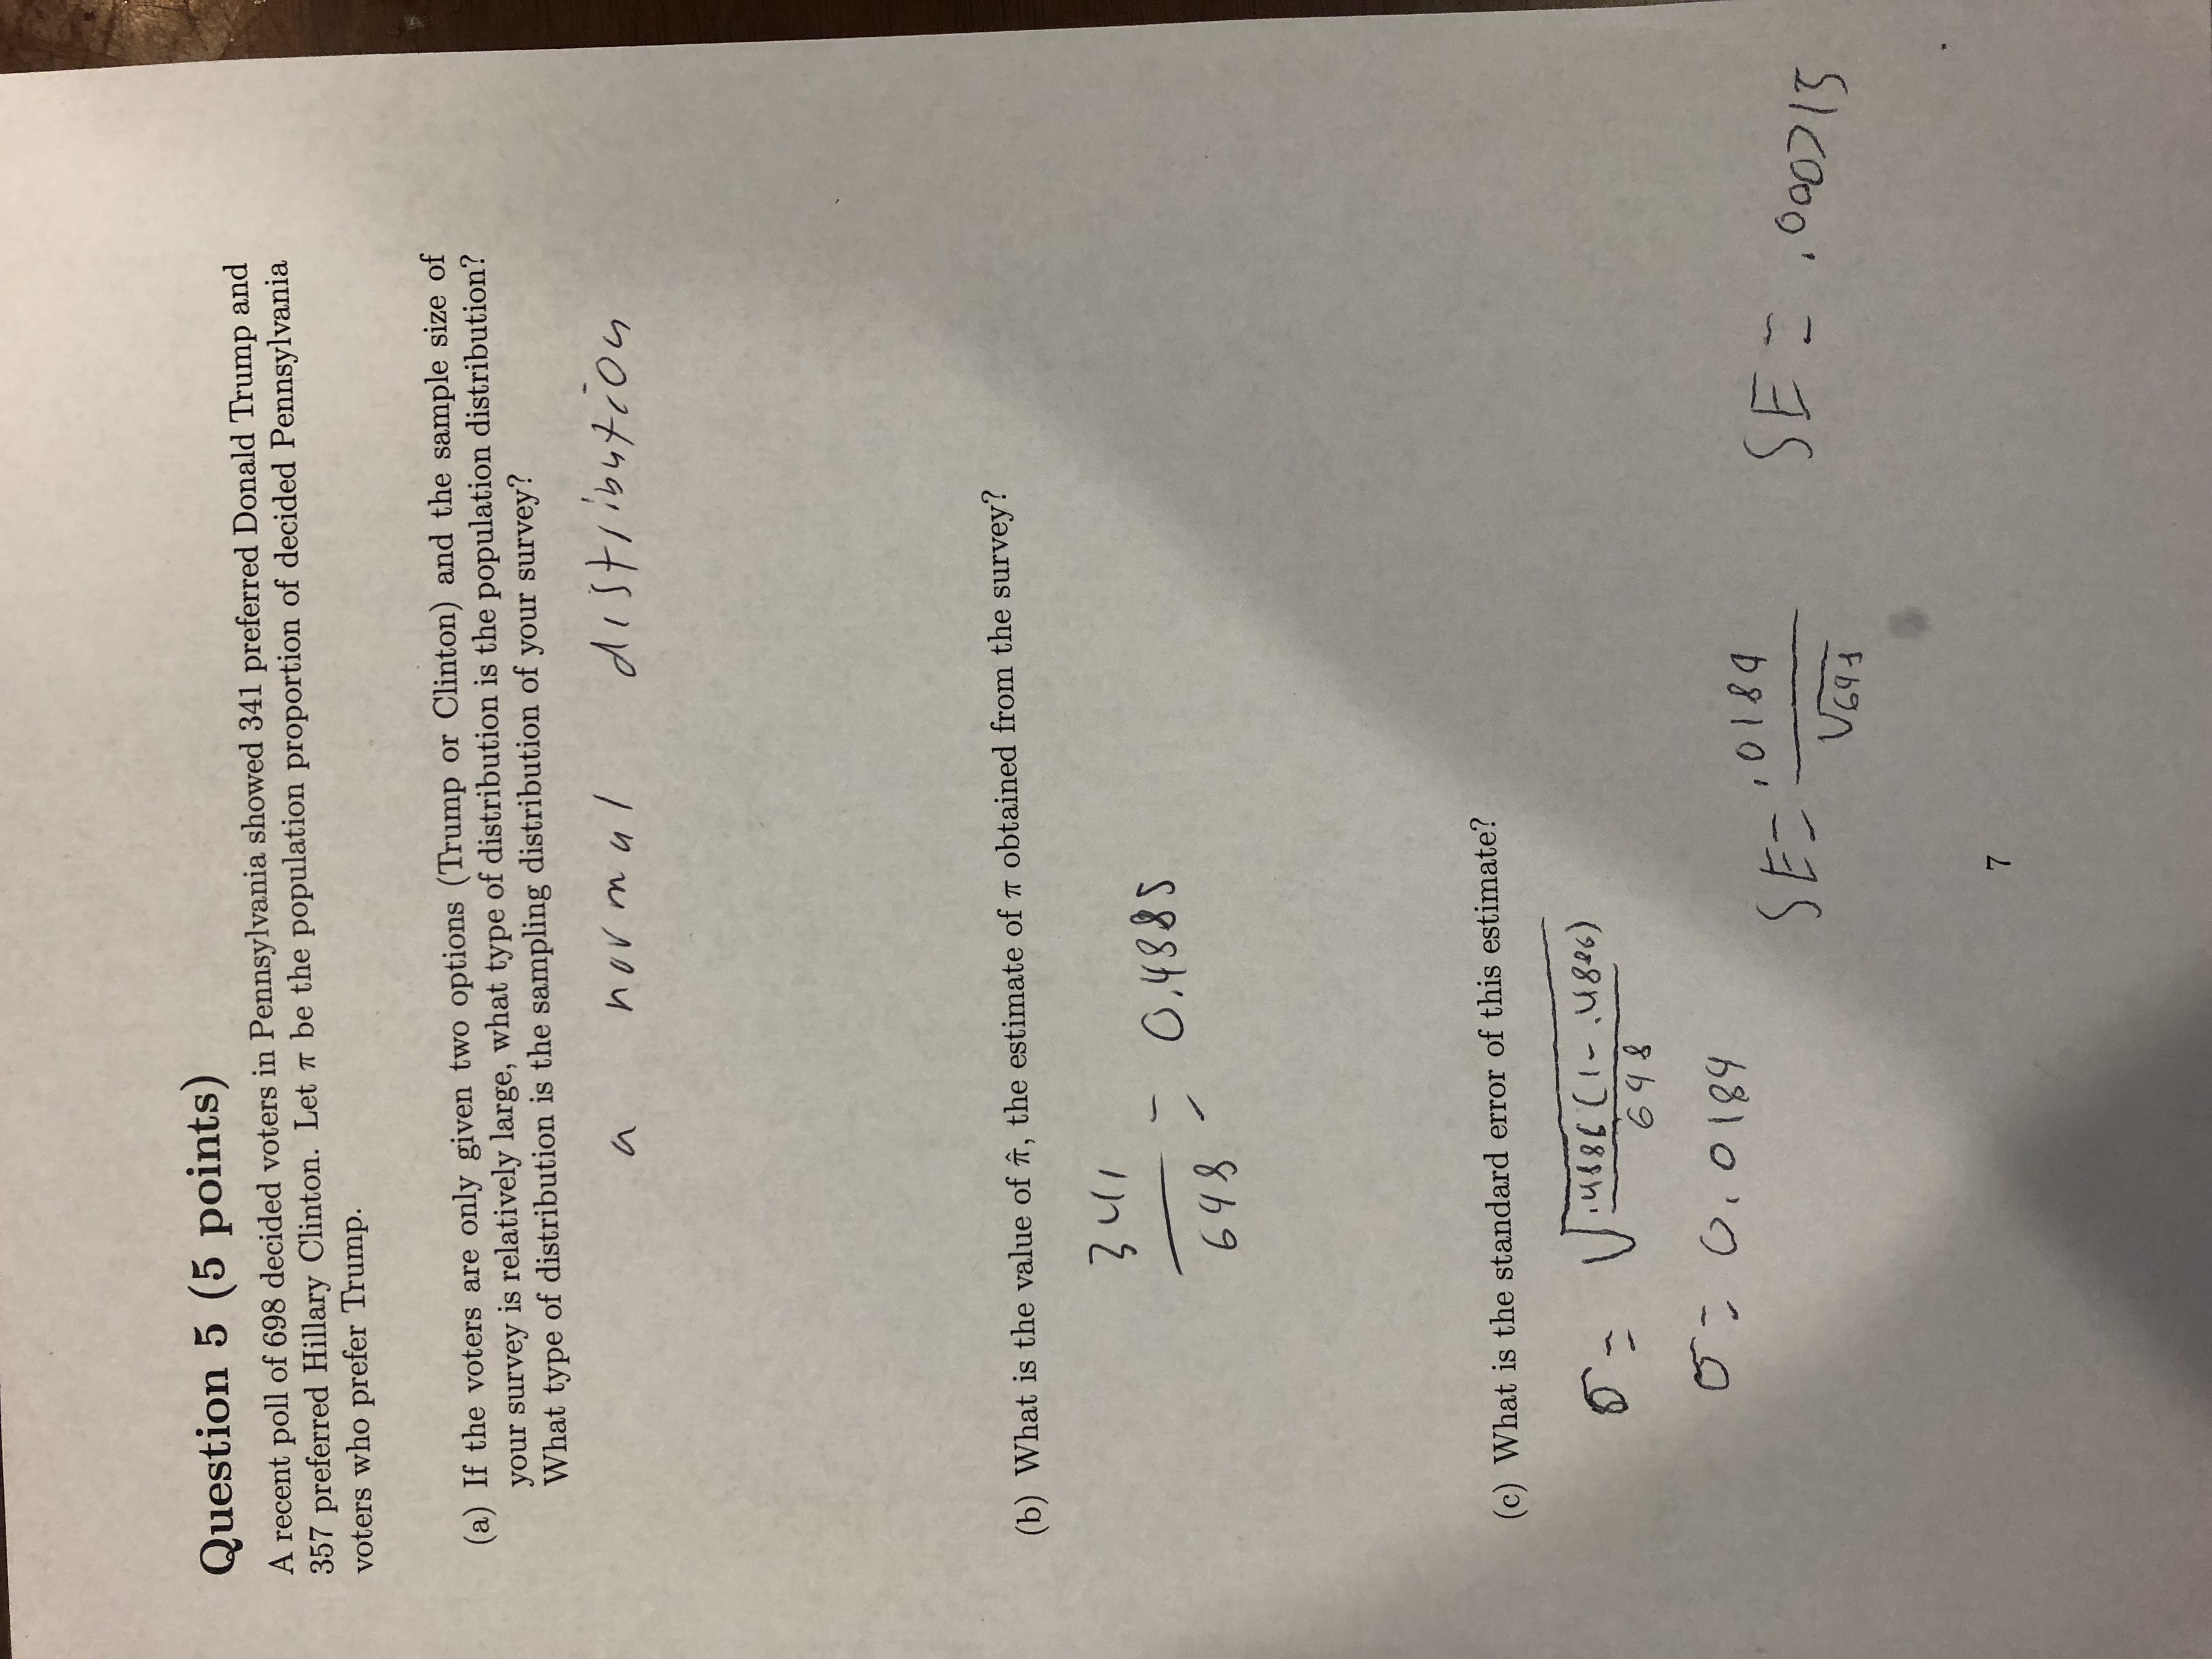 Question 5 (5 points)
A recent poll of 698 decided voters in Pennsylvania showed 341 preferred Donald Trump and
357 preferred Hillary Clinton. Let π be the population proportion of decided Pennsylvania
voters who prefer Trump.
(a) If the voters are only given two options (Trump or Clinton) and the sample size of
your survey is relatively large, what type of distribution is the population distribution?
What type of distribution is the sampling distribution of your survey?
a normal distribution
(b) What is the value of π̂, the estimate of π obtained from the survey?
341
698 = 0.4885
(c) What is the standard error of this estimate?
σ = √.4886(1-.4886)
698
σ = 0.0189
SE = .0189
√698
SE = .000715
7